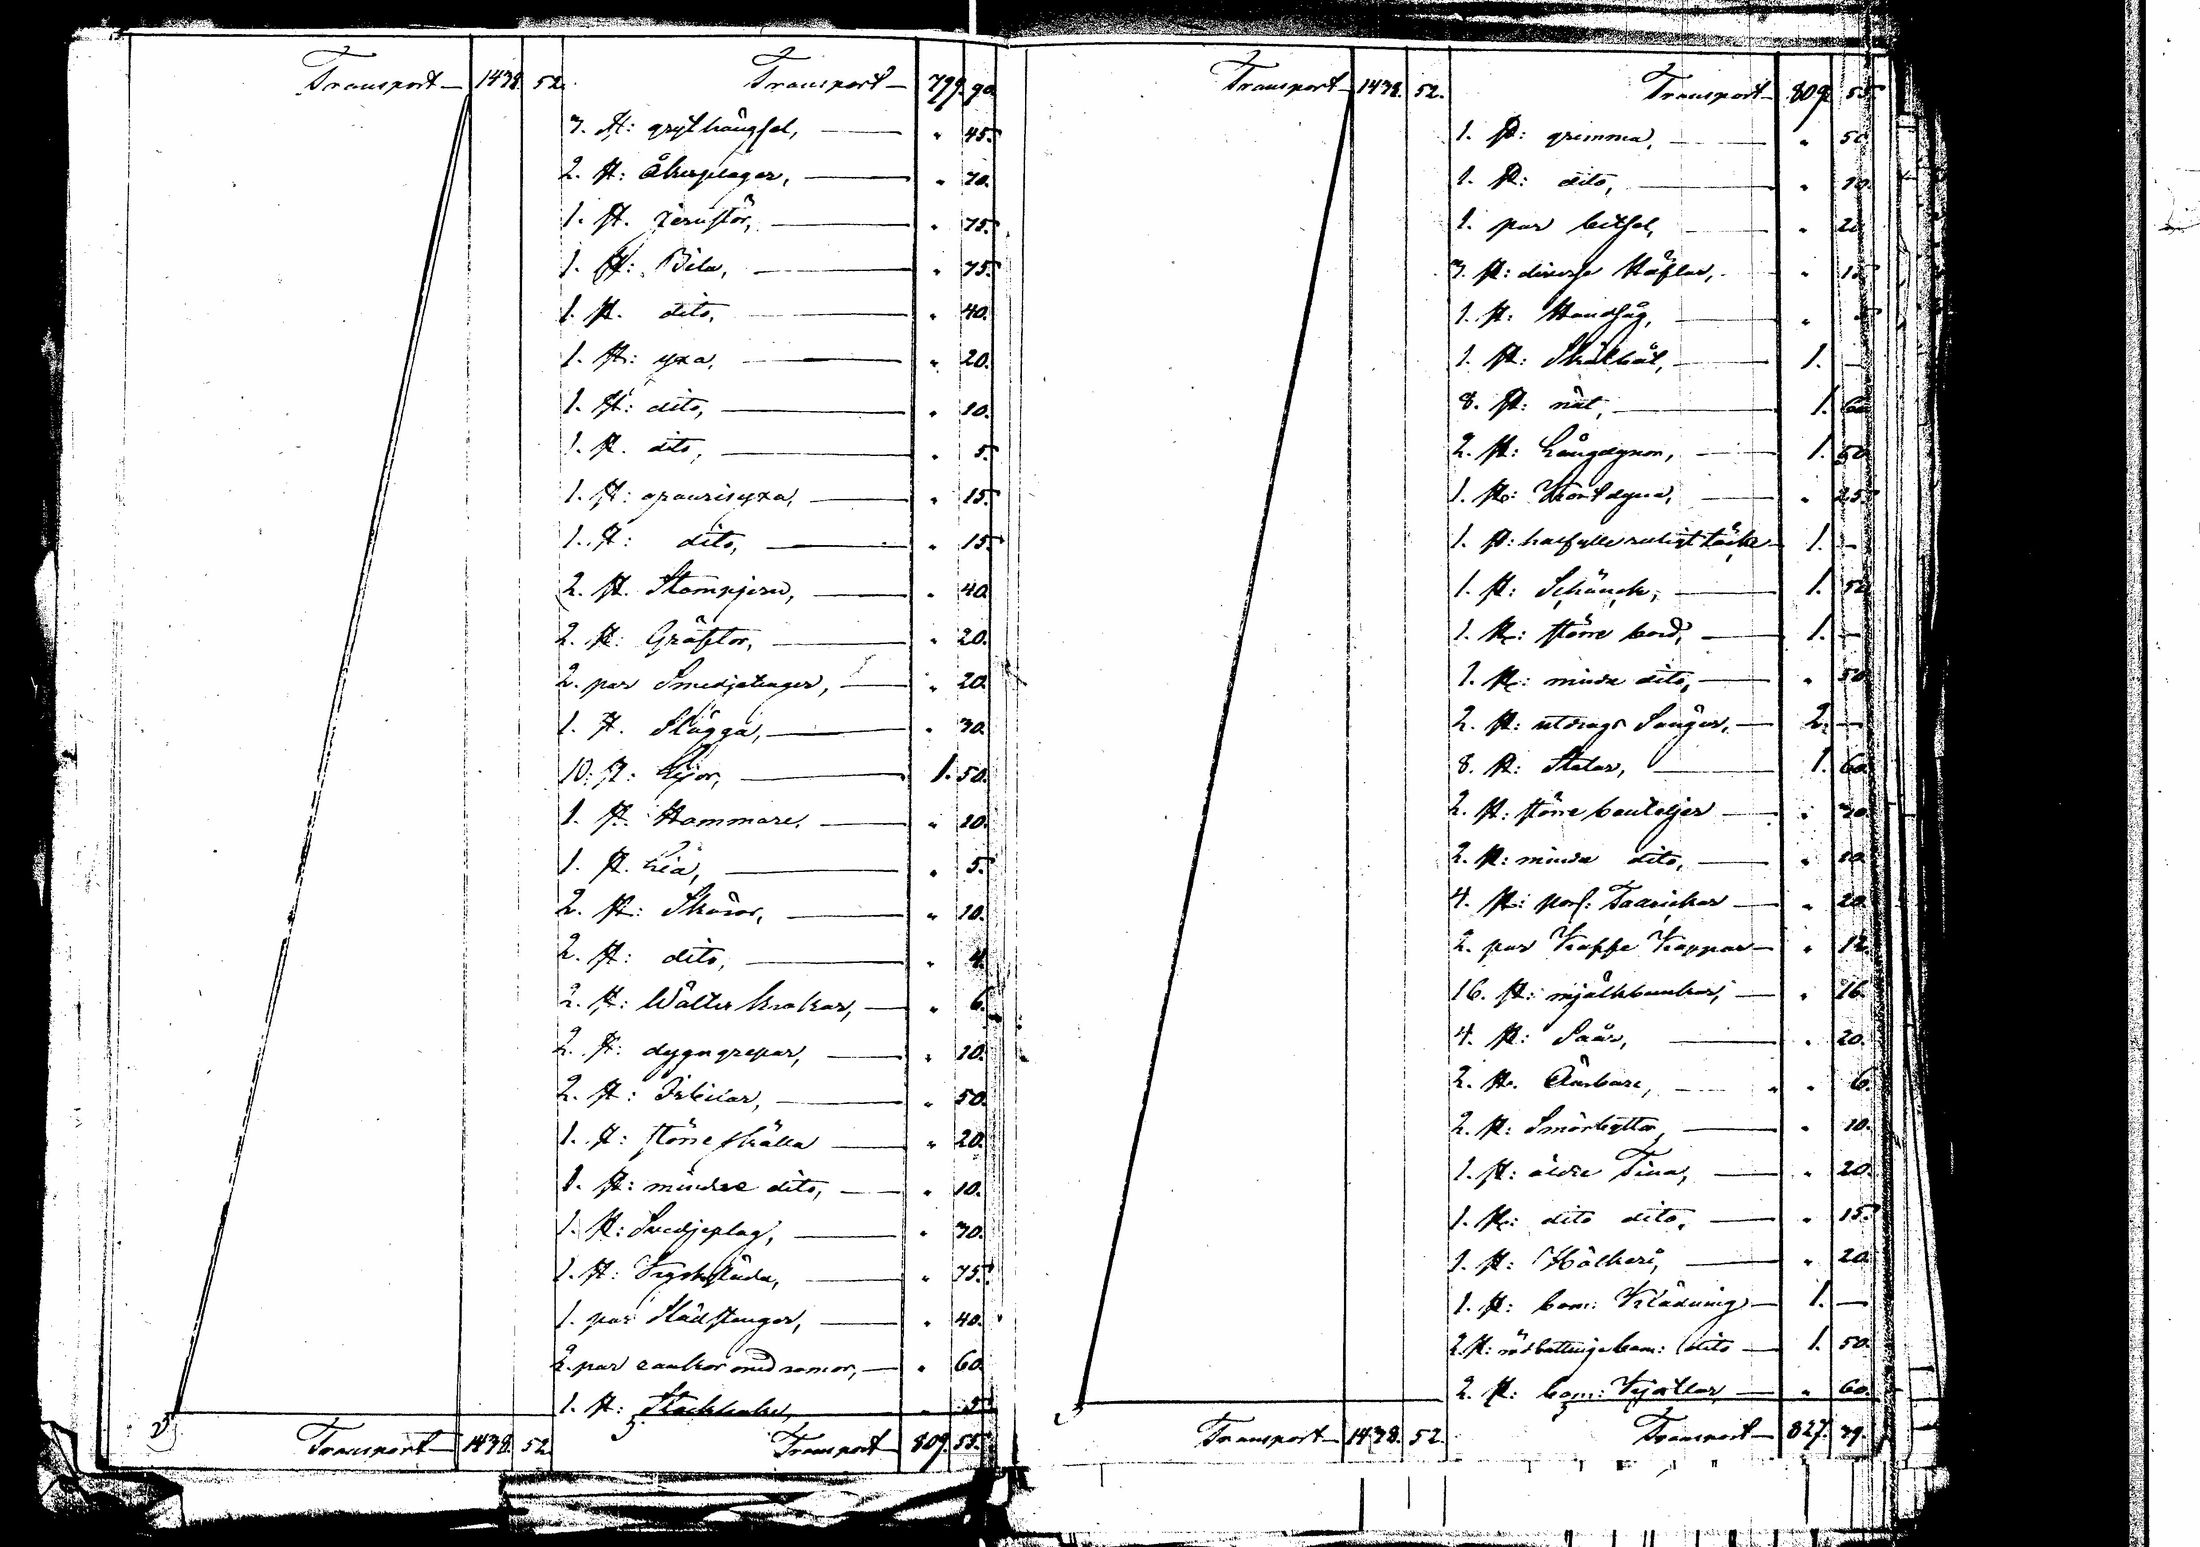 Transport — 1438. 52. Transport — 799. 90.
3. st: grythängsel, — " 45.
2. st: Åkerplogar, — " 70.
1. st. jernstör, — " 75.
1. st: Bila, — " 75.
1. st. dito, — " 40.
1. st: yxa, — " 20.
1. st: dito, — " 10.
1. st. dito, — " 5.
1. st: — " 15.
1. st: dito, — " 15.
2. st. Stampjern, — " 40.
2. st: Gräftor, — " 20.
2. par Smedjetenger, — " 20.
1. st. Slägga, — " 30.
10. st: Lijor, — 1. 50.
1. st. Hammare, — " 10.
1. st. Lia, — " 5.
2. st: Skäror, — " 10.
2. st: dito, — " 4.
2. st: — " 6.
2. st: dyngngrepar, — " 10.
2. st: Isbilar, — " 50.
1. st: större skälla — " 20.
1. st: mindre dito, — " 10.
1. st: Svedjeplog, — " 30.
1. st: — " 75.
1. par — " 40.
2. par med — " 60.
1. st: — " 5.
Transport — 1438. 52. Transport — 809. 55.
Transport — 1438. 52. Transport — 809. 55.
1. st: grimma, — " 50.
1. st: dito, — " 10.
1. par betsel, — " 20.
3. st: diverse Häflar, — " 15.
1. st: Handsåg, — " 5.
1. st: — 1. —
8. st: nät, — 1. 60.
2. st: Långdynor, — 1. 50.
1. st: Kortdyna, — " 25.
1. st: halfylle täcke — 1. —
1. st: Schänck, — 1. 50.
1. st: större bord, — 1. —
1. st: mindre dito, — " 50.
2. st: utdrags Sänger, — 2. —
8. st: Stolar, — 1. 60.
2. st: större bouteljer — " 20.
2. st: mindre dito, — " 10.
4. st: porsl: Taldrickar — " 20.
2. par Kaffe Koppar — " 12.
16. st: mjölkbunkar, — " 16.
4. st: Såar, — " 20.
2. st. Ämbare, — " 6.
2. st: Smörbyttor, — " 10.
1. st: äldre Tina, — " 20.
1. st: dito dito, — " 15.
1. st: — " 20.
1. st: bom: Klädning — 1. —
2. st: bom: dito — 1. 50.
2. st: bom: Kjortlar — " 60.
Transport — 1438. 52. Transport — 827. 39.